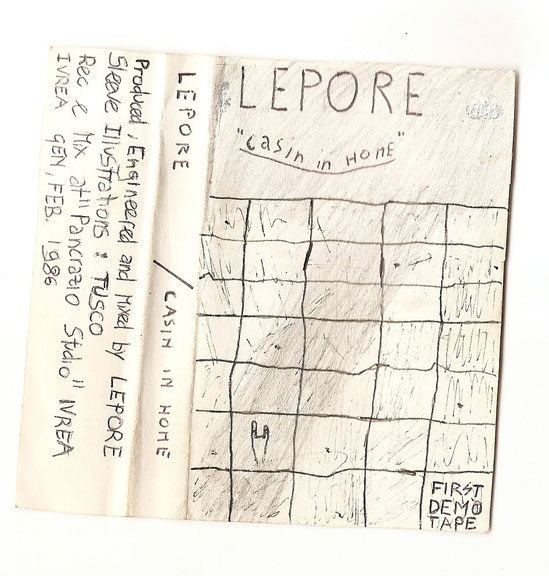 LEPORE
"Casin in HOME"
FIRST
DEMO
TAPE
LEPORE / CASIN IN HOME
Produced, Engineered and mixed by LEPORE
Sleeve Illustrations: TUSCO
Rec e Mix at "Pancrazio Studio" IVREA
IVREA GEN, FEB. 1986